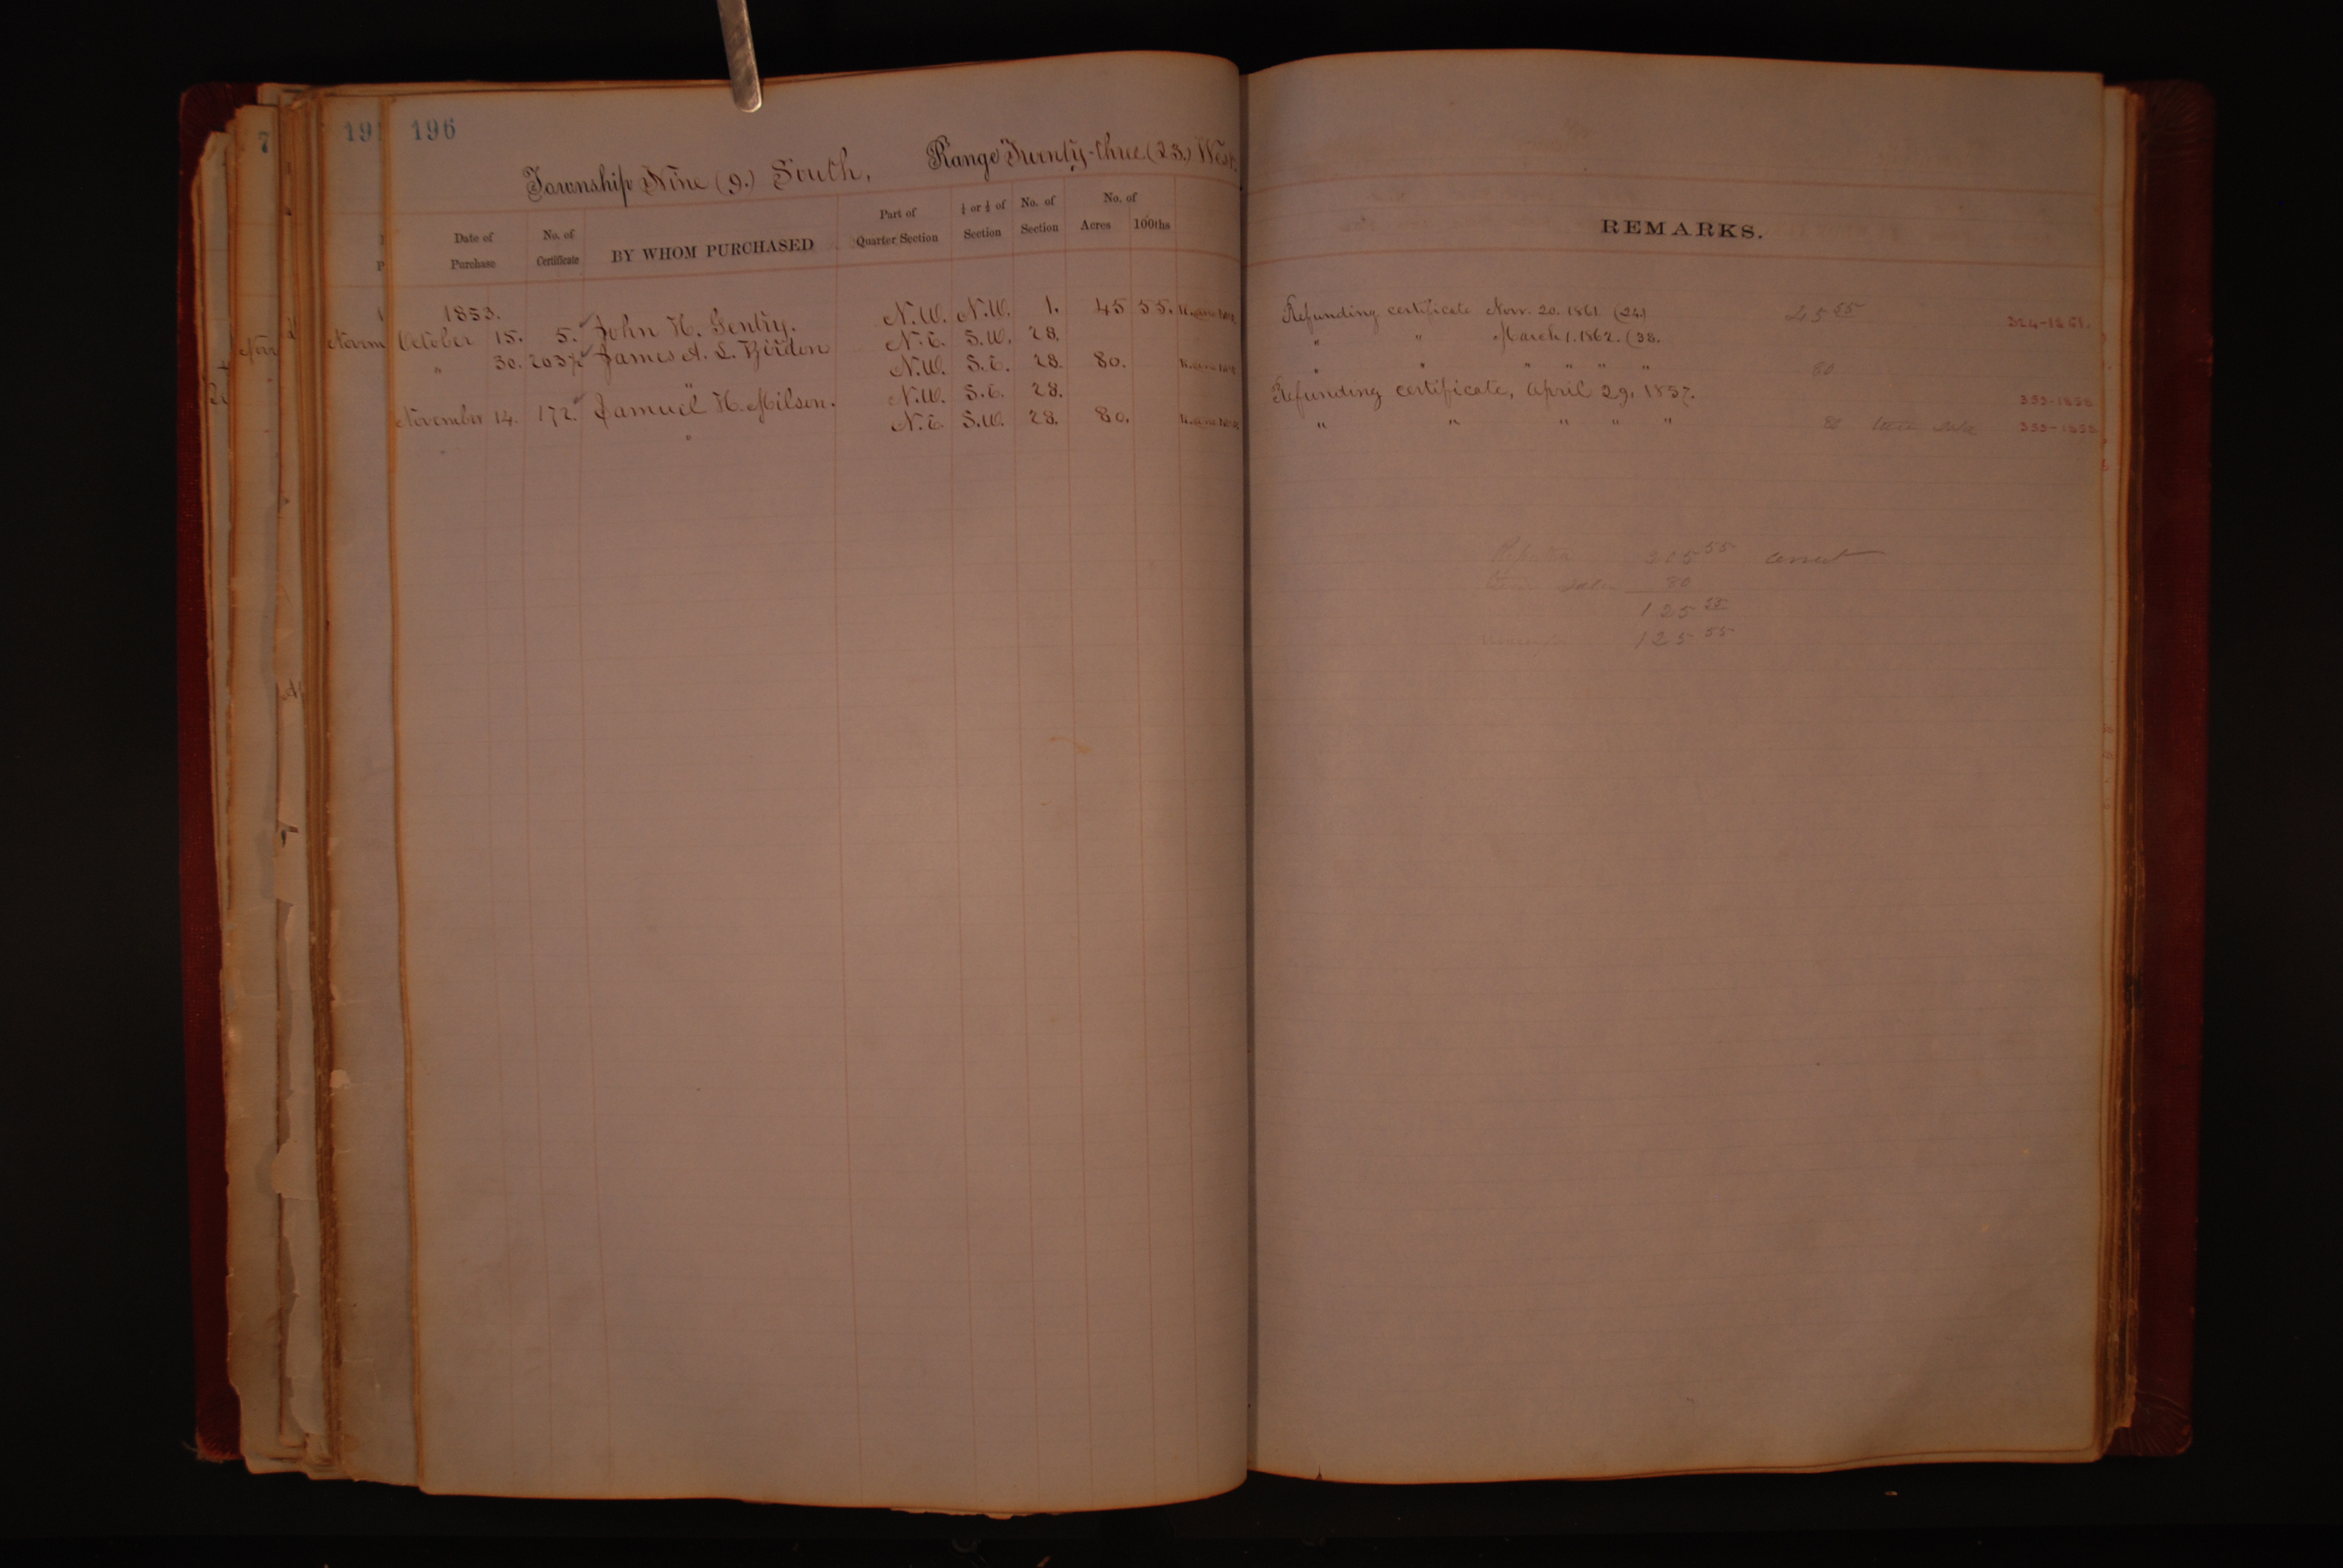 196
Township Nine (9.) South, Range Twenty-three (23.) West.
Date of Purchase No. of Certificate BY WHOM PURCHASED Part of Quarter Section ¼ or ½ of Section No. of Section No. of Acres 100ths
REMARKS.
1853.
October 15. 5. John H. Gentry. N.W. N.W. 1. 45 55. Refunding certificate Nov. 20. 1861. (24.) 45 55 324-1861.
" 30. James A. L. N.E. S.W. 28. " " March 1. 1862. (38.
" N.W. S.E. 28. 80. " " " " " " 80
November 14. 172. Samuel H. Milson. N.W. S.E. 28. Refunding certificate, April 29, 1857. 353-1858
" N.E. S.W. 28. 80. " " " " " 80 353-1858
205 55 correct
80
125 55
125 55